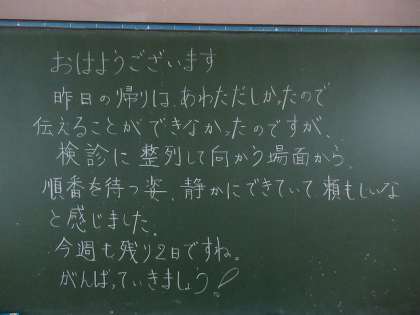 おはようございます
昨日の帰りは、あわただしかったので
伝えることができなかったのですが、
検診に整列して向かう場面から、
順番を待つ姿、静かにできていて頼もしいな
と感じました。
今週も残り2日ですね。
がんばっていきましょう!